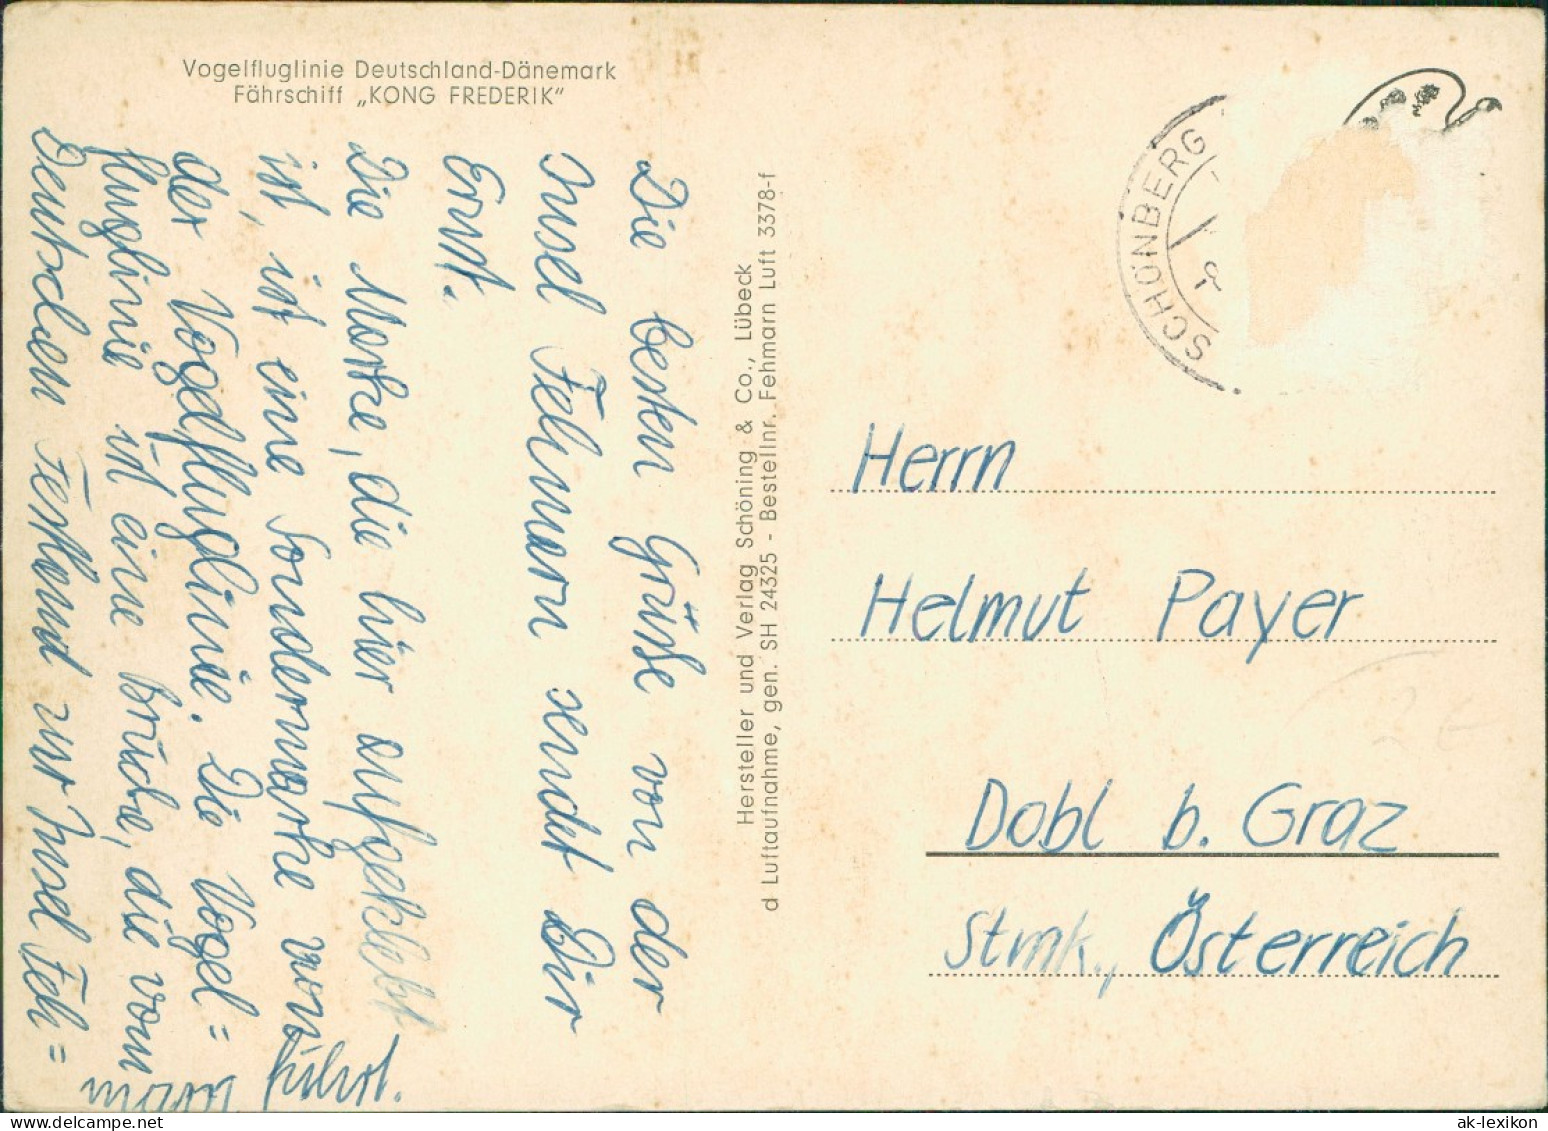 Vogelfluglinie Deutschland-Dänemark
Fährschiff „KONG FREDERIK“
Die besten Grüsse von der
Insel Fehmarn sendet Dir
Ernst.
Die Marke, die hier aufgeklebt
ist, ist eine Sondermarke von
der Vogelfluglinie. Die Vogel=
fluglinie ist eine Brücke, die vom
Deutschen Festland zur Insel Feh=
marn führt.
Hersteller und Verlag Schöning & Co., Lübeck
d Luftaufnahme, gen. SH 24325 - Bestellnr. Fehmarn Luft 3378-f
SCHÖNBERG
-8
Herrn
Helmut Payer
Dobl b. Graz
Stmk., Österreich
ak-lexikon